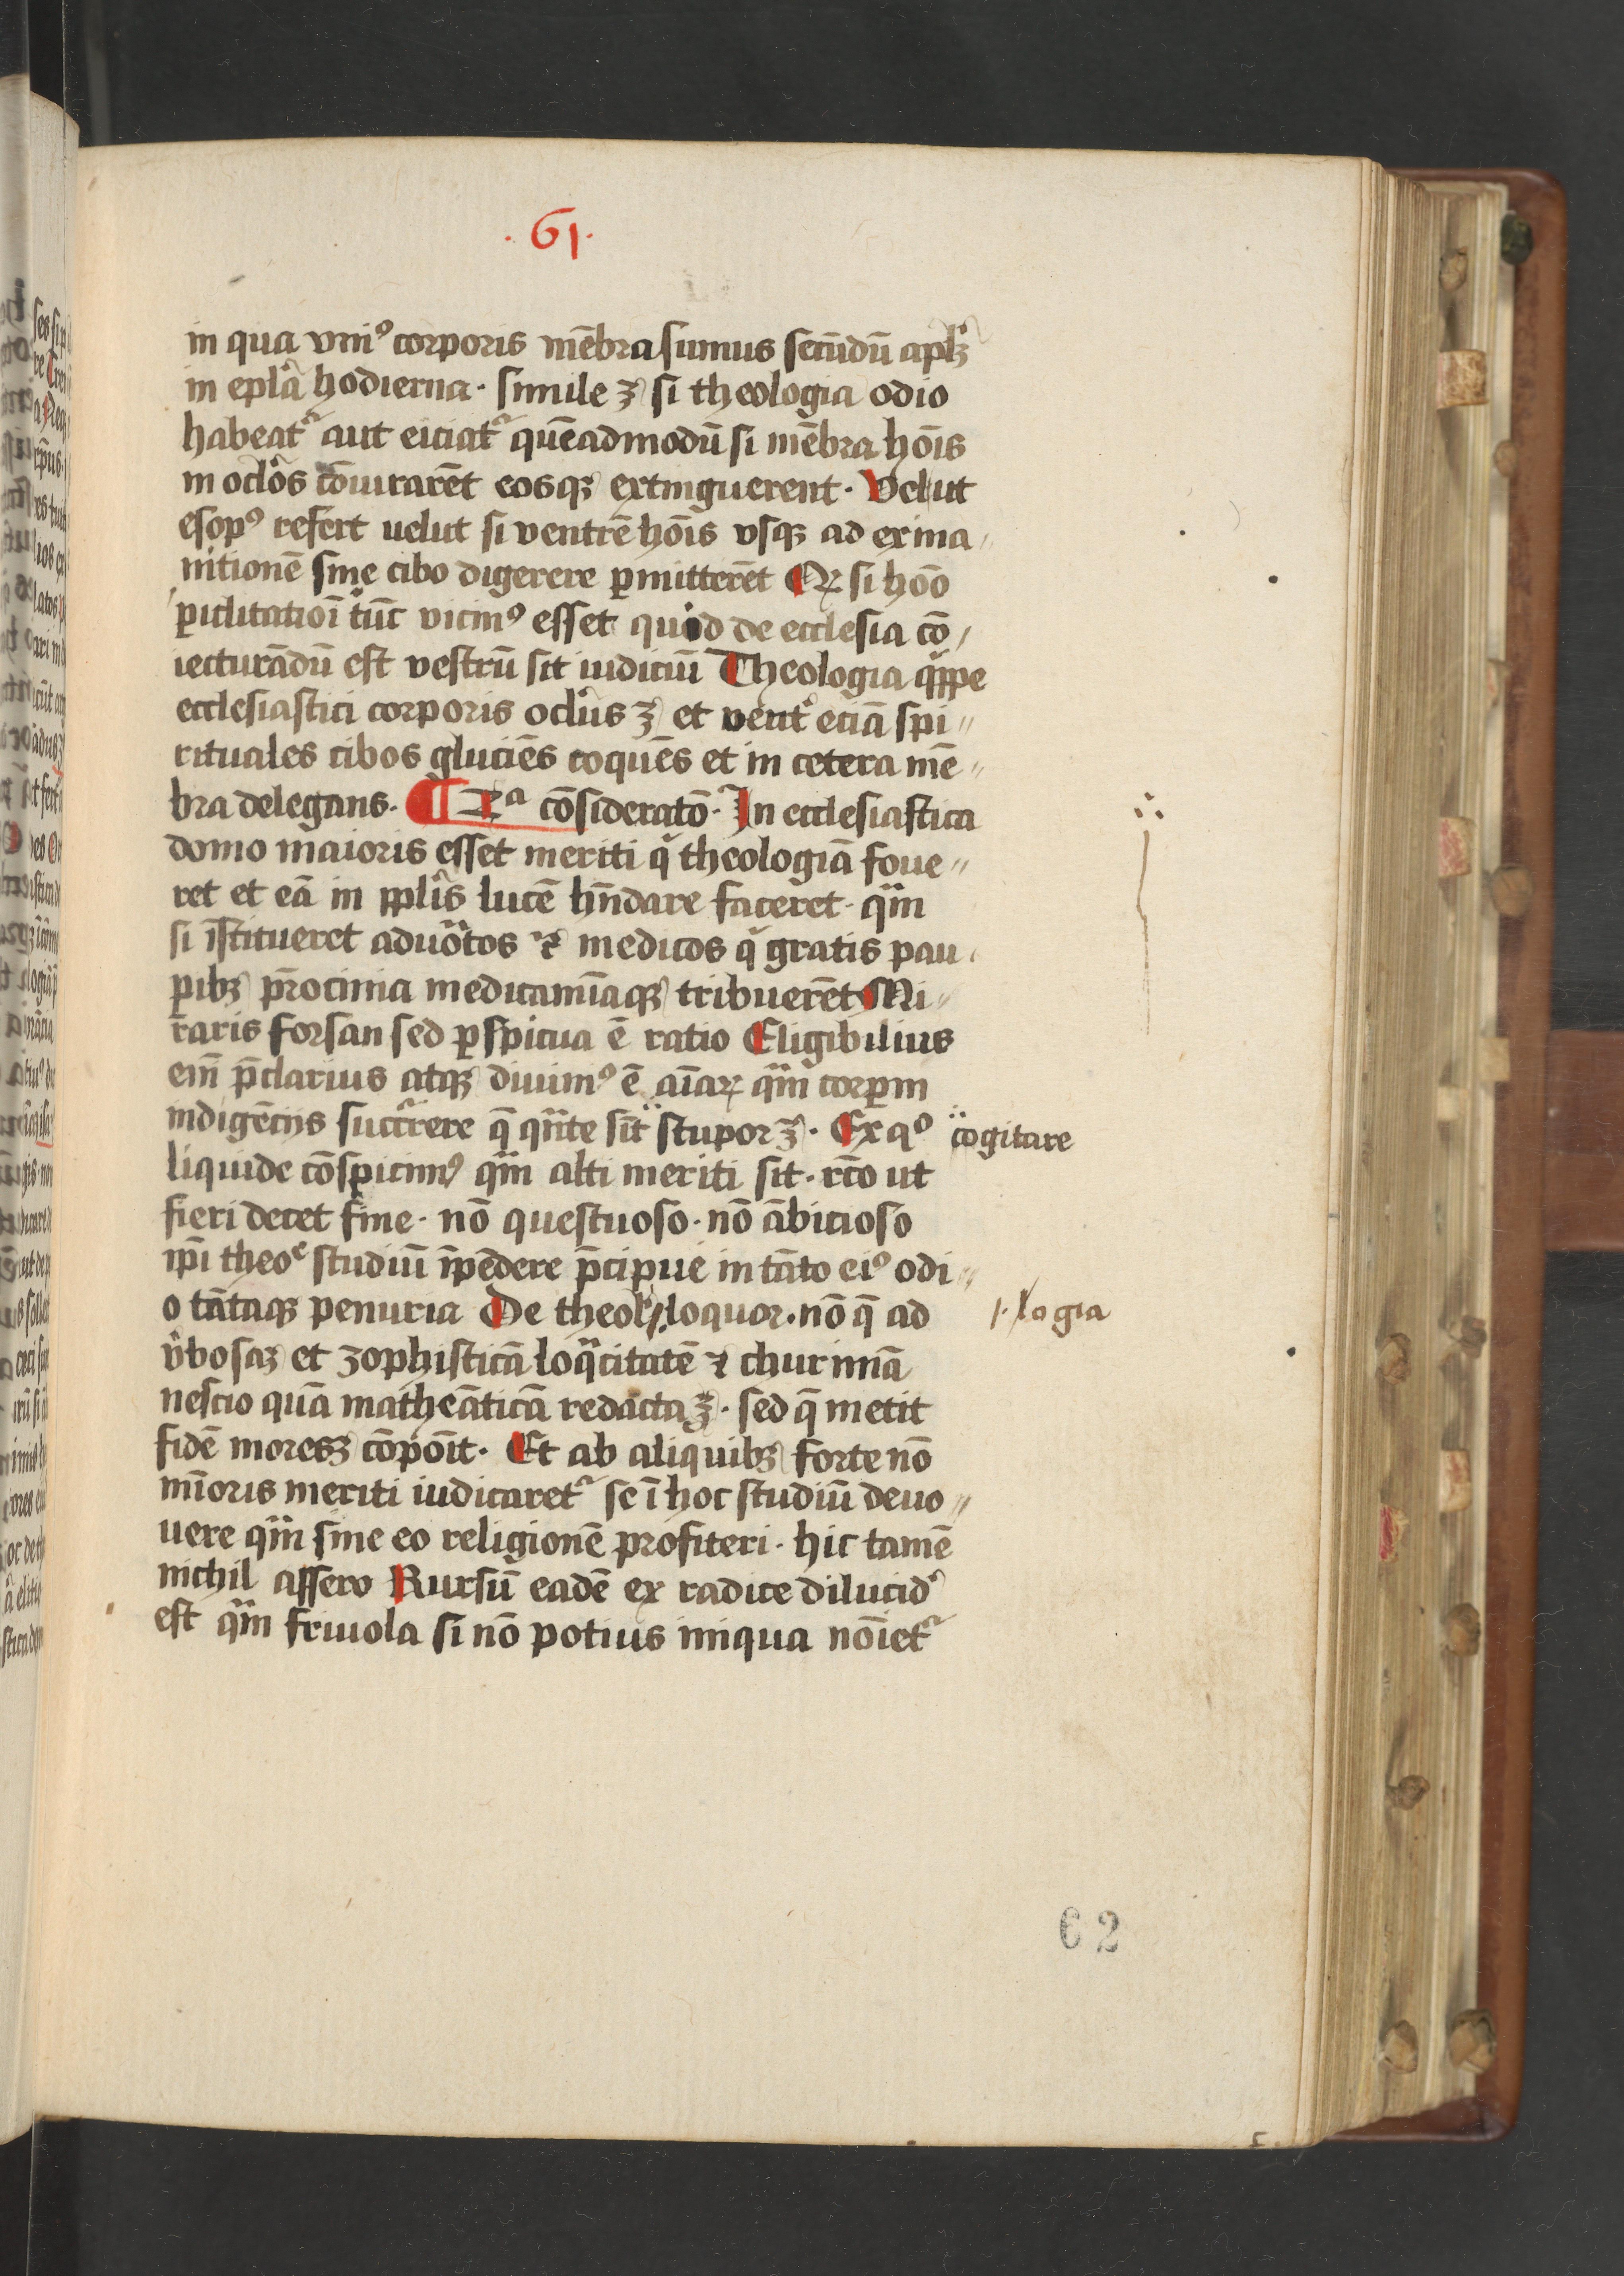 .61.
in qua vniꝰ corporis mēbra sumus secūdū apłꝫ
in epłā hodierna · simile ꝫ si theologia odio
habeatᷣ aut eiciatᷣ quēadmodū si mēbra hoīs
in oclo᷎s cōiurarēt eosqꝫ extinguerent · Velut
esopꝰ refert uelut si ventrē hoīs vsqꝫ ad exina⸗
nitionē sine cibo digerere ꝑmitterēt Qꝛ si hoō
ꝑiclitatioī tūc vicinꝰ esset quid de ecclesia cō⸗
iecturādū est vestrū sit iudiciū Theologia qͥppe
ecclesiastici corporis oclūs ꝫ et ventʼ eciā spi⸗
rituales cibos gluciēs coquēs et in cetera mē⸗
bra delegans. ¶ Xᵃ cōsideratō · In ecclesiastica
domo maioris esset meriti qͥ theologiā foue⸗
ret et eā in ppłīs lucē hn̄dare faceret · qͣm
si īstitueret aduo᷎tos ⁊ medicos qͥ gratis pau⸗
ꝑibꝫ p̄rocinia medicamīaqꝫ tribuerēt Mi⸗
raris forsan sed ꝑspicua ē ratio Eligibilius
em̄ p̄clarius atqꝫ diuinꝰ ē aīaꝝ qͣm corꝑm
indigēcijs succr̄rere q̄ qn̄te sīt stupor ꝫ · Ex qᵒ
cogitare
liquide cōspicimꝰ qͣm alti meriti sit · rc̄o ut
fieri decet fine · nō questuoso · nō ābicioso
ip̄i theoᵉ studiū īpēdere p̄cipue in tāto eiꝰ odi⸗
o tātaqꝫ penuria De theol loquor · nō q̄ ad
logia
v̓bosaꝫ et zophisticā loqͣcitatē ⁊ churmā
nescio quā mathēaticā redacta ꝫ · sed q̄ metit
fidē moresꝫ cōpoīt · Et ab aliquibꝫ forte nō
mīoris meriti iudicaretᷣ se ī hoc studiū deuo⸗
uere qͣm sine eo religionē profiteri · hic tamē
nichil assero Rursū eadē ex radice dilucidʼ
est qͣm friuola si nō potius iniqua noīetᷣ
62